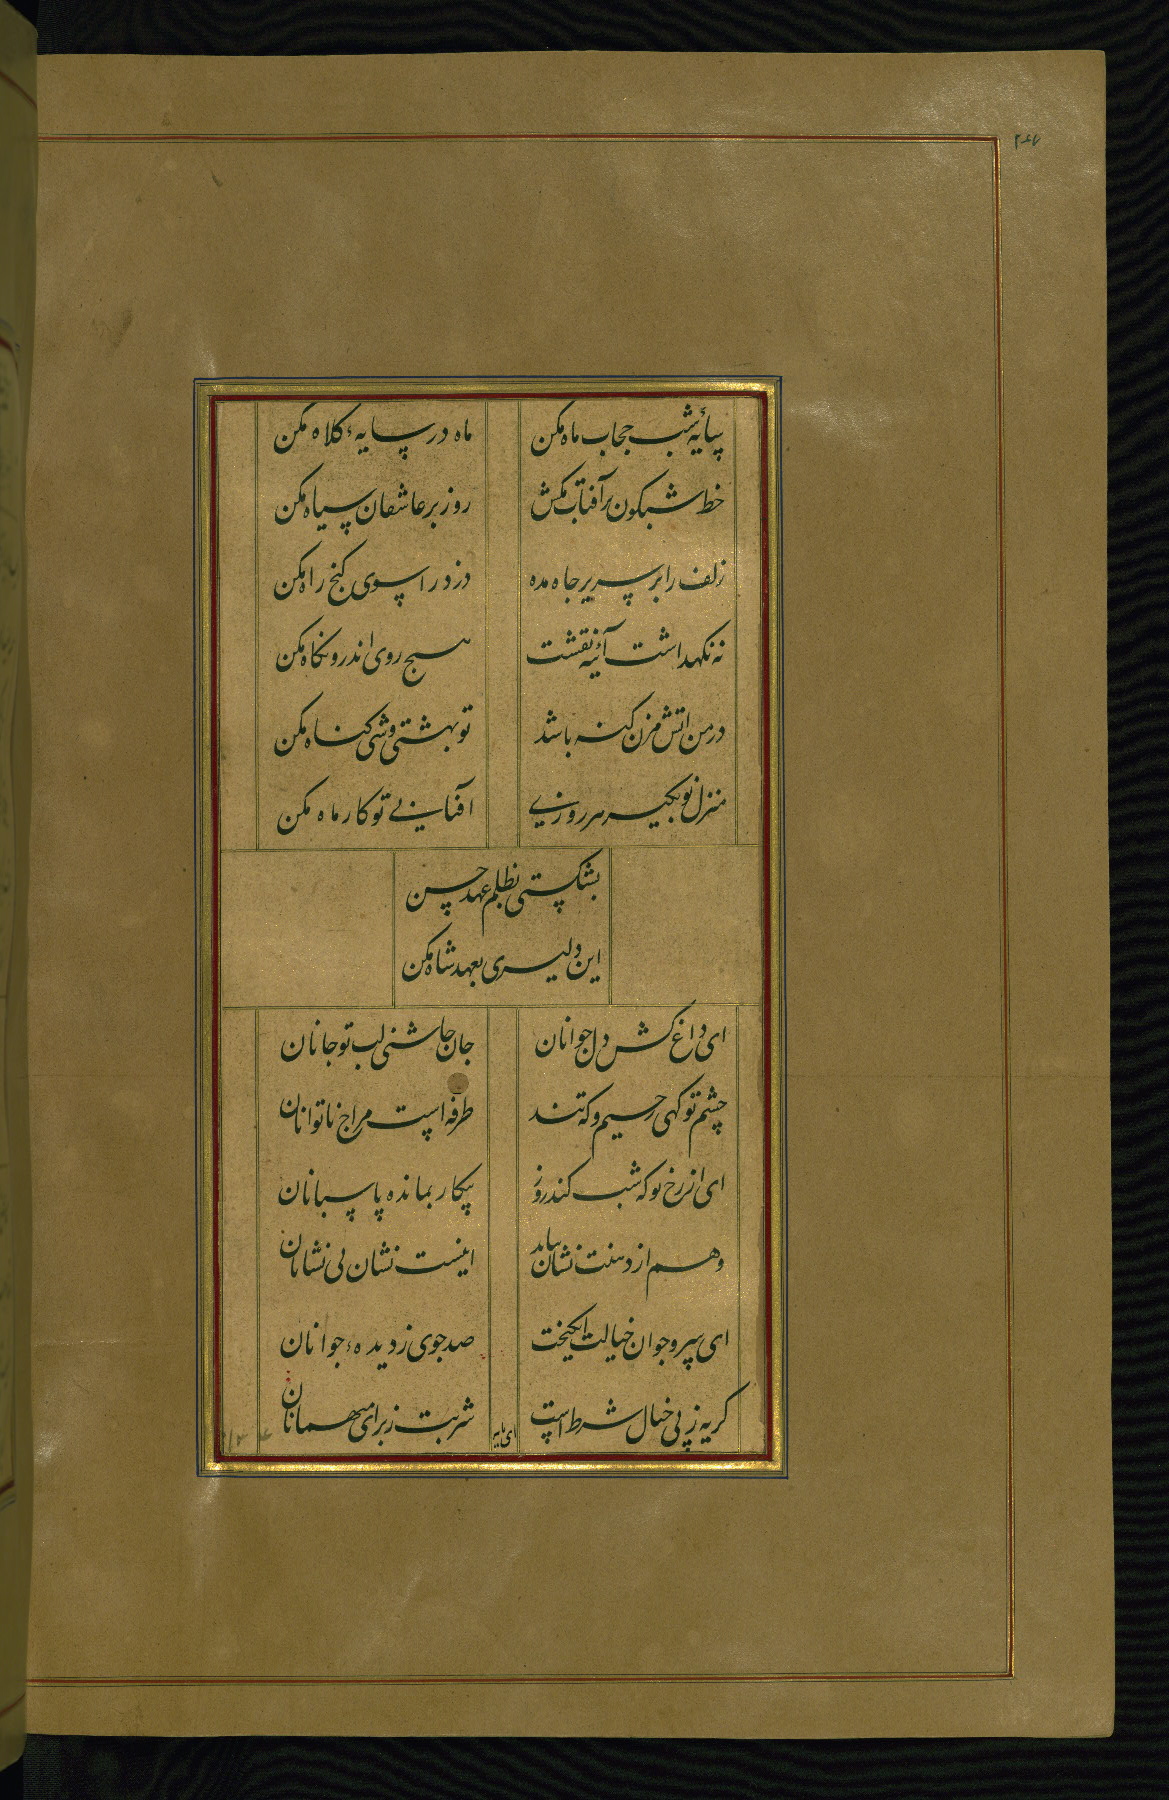 ۲۶۷
سایۀ شب حجاب ماه مکن
ماه در سایهٔ کلاه مکن
خط شبکون بر آفتاب مکش
روز بر عاشقان سیاه مکن
زلف را بر سریر جاه مده
دزد را سوی کنج راه مکن
نه نکهداشت آئینه نقشت
هیچ روی اندرو نکاه مکن
در من اتش مزن کنه باشد
تو بهشتی وشی کناه مکن
منزل نو مکیر هر روزی
آفتابی تو کار ماه مکن
بشکستی بظلم عهد حسن
این دلیری بعهد شاه مکن
ای داغ کش دل جوانان
جان چاشنی لب تو جانان
چشم تو کهی رحیم و که تند
طرفه است مزاج ناتوانان
ای از رخ تو که شب کند روز
بیکار بمانده پاسبانان
وهم از دهنت نشان نیابد
اینست نشان بی نشانان
ای پیر و جوان خیالت انکیخت
صد جوی ز دیدهٔ جوانان
کریه ز پی خیال شرط است
شربت ز برای میهمانان
ای مایه